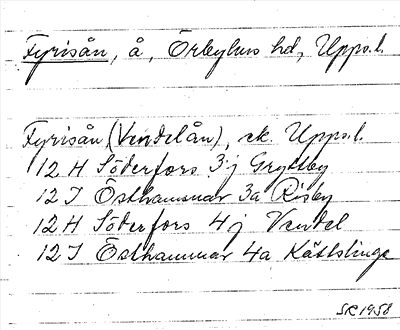 Fyrisån, å, Örbyhus hd, Upps.l.
Fyrisån (Vendelån), ek. Upps.l.
12 H Söderfors 3 j Gryttby
12 I Östhammar 3a Risby
12 H Söderfors 4 j Vendel
12 I Östhammar 4a Kättslinge
SK 1958